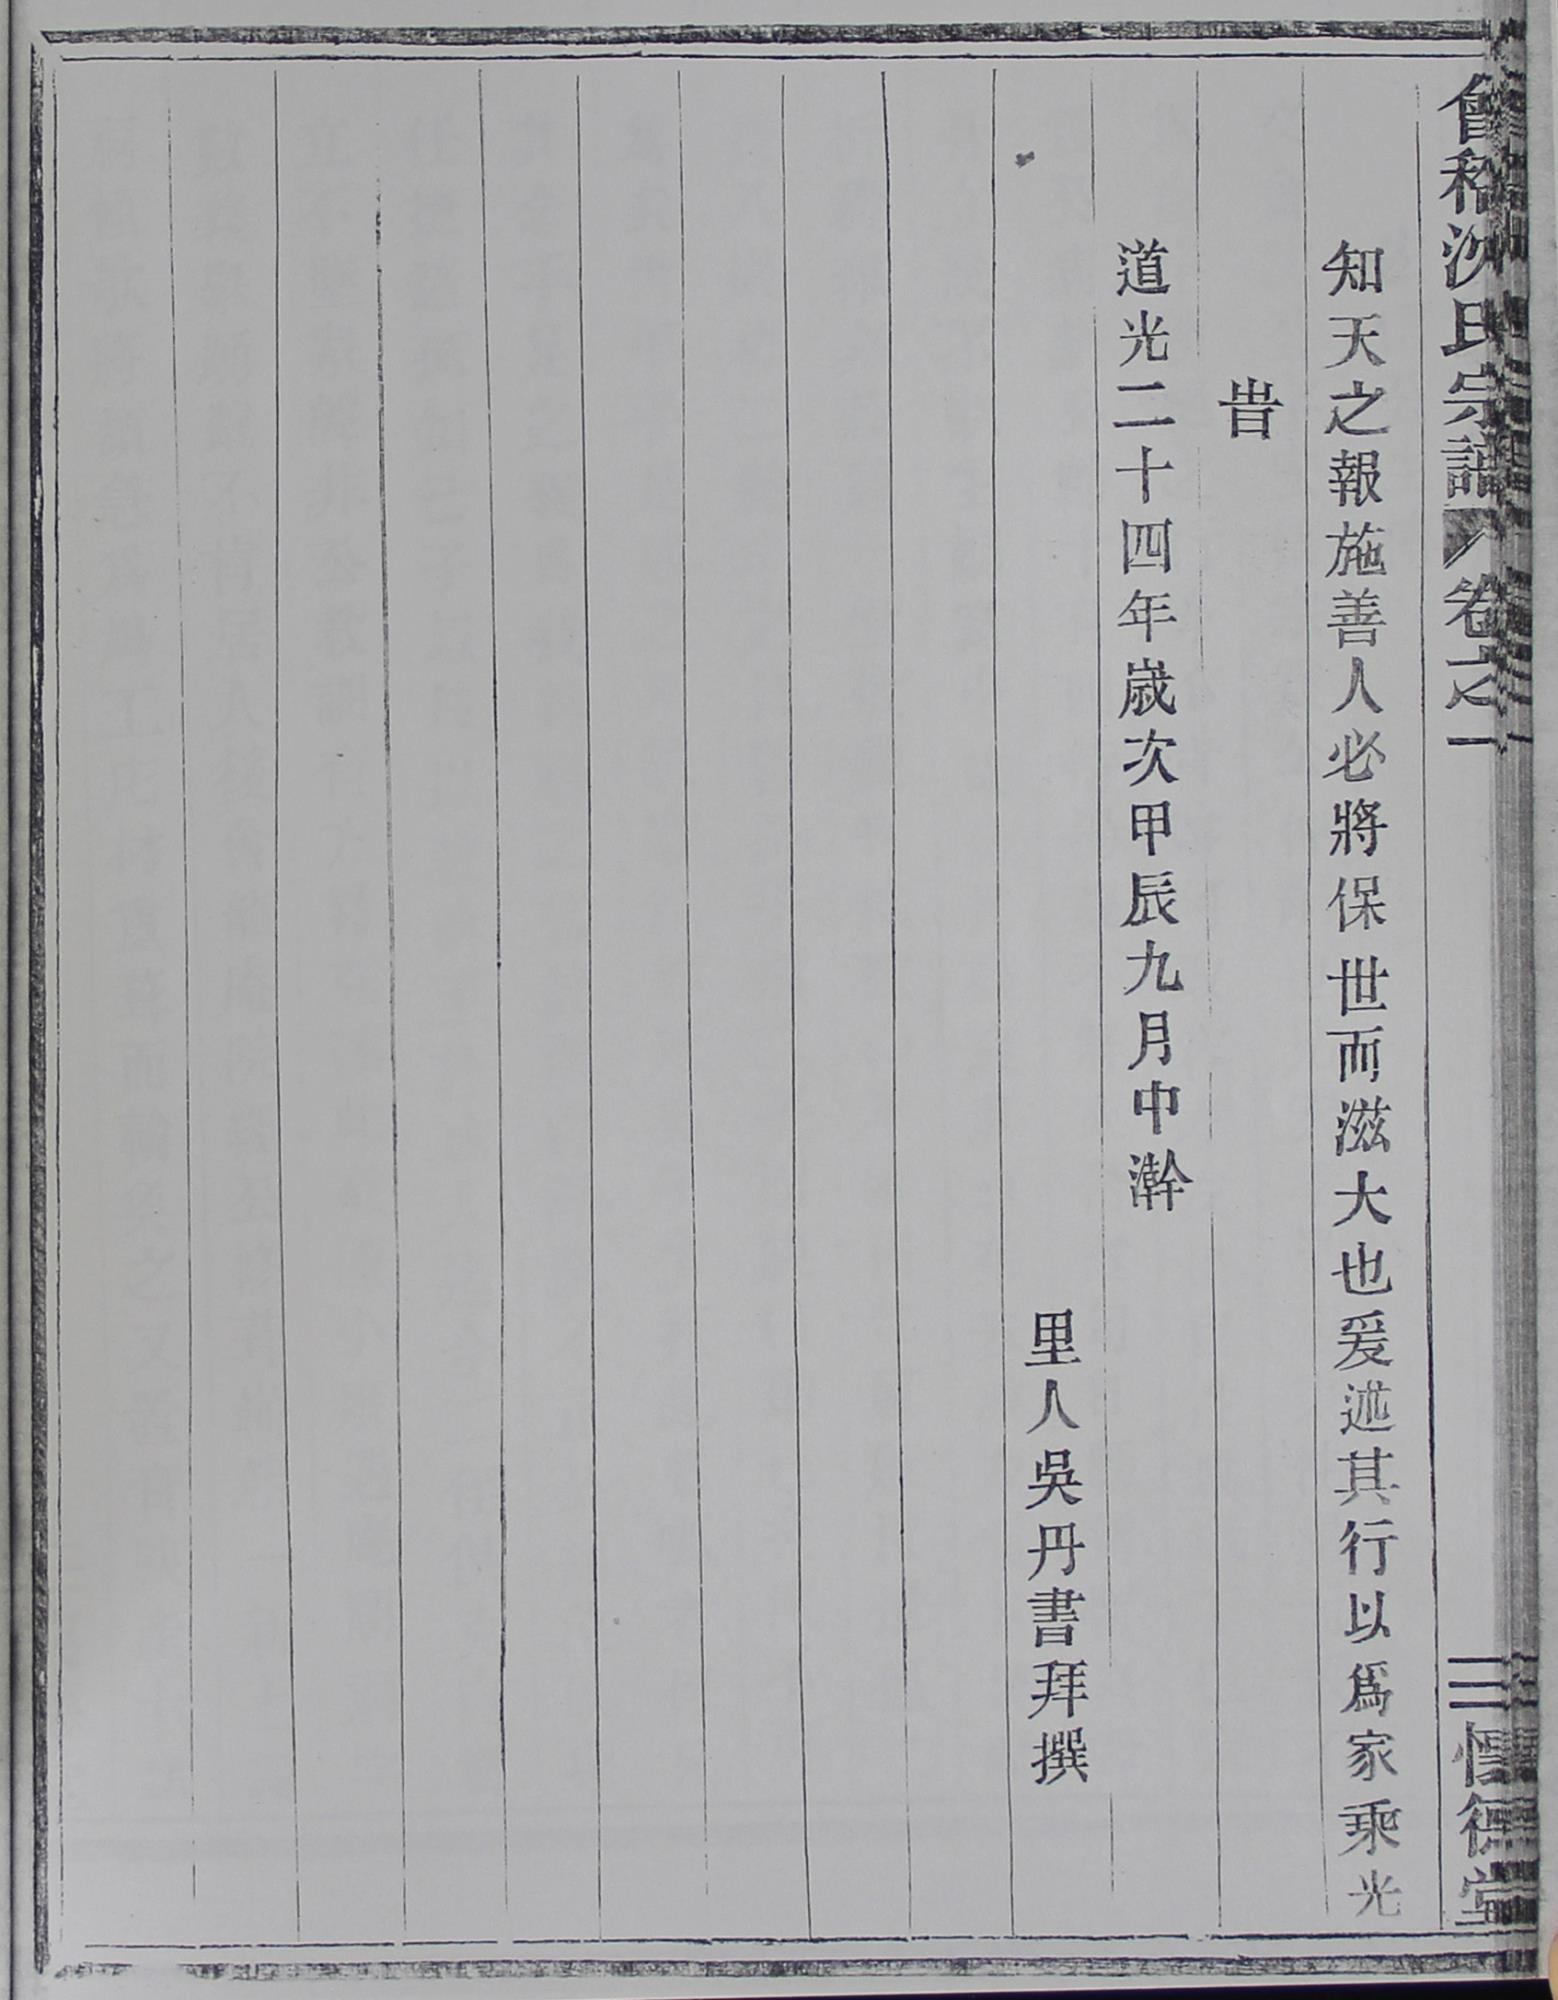 會稽沈氏宗譜 卷之一
二 惇德堂
知天之報施善人必將保世而滋大也爰述其行以爲家乘光
旹
道光二十四年歲次甲辰九月中澣
里人吳丹書拜撰